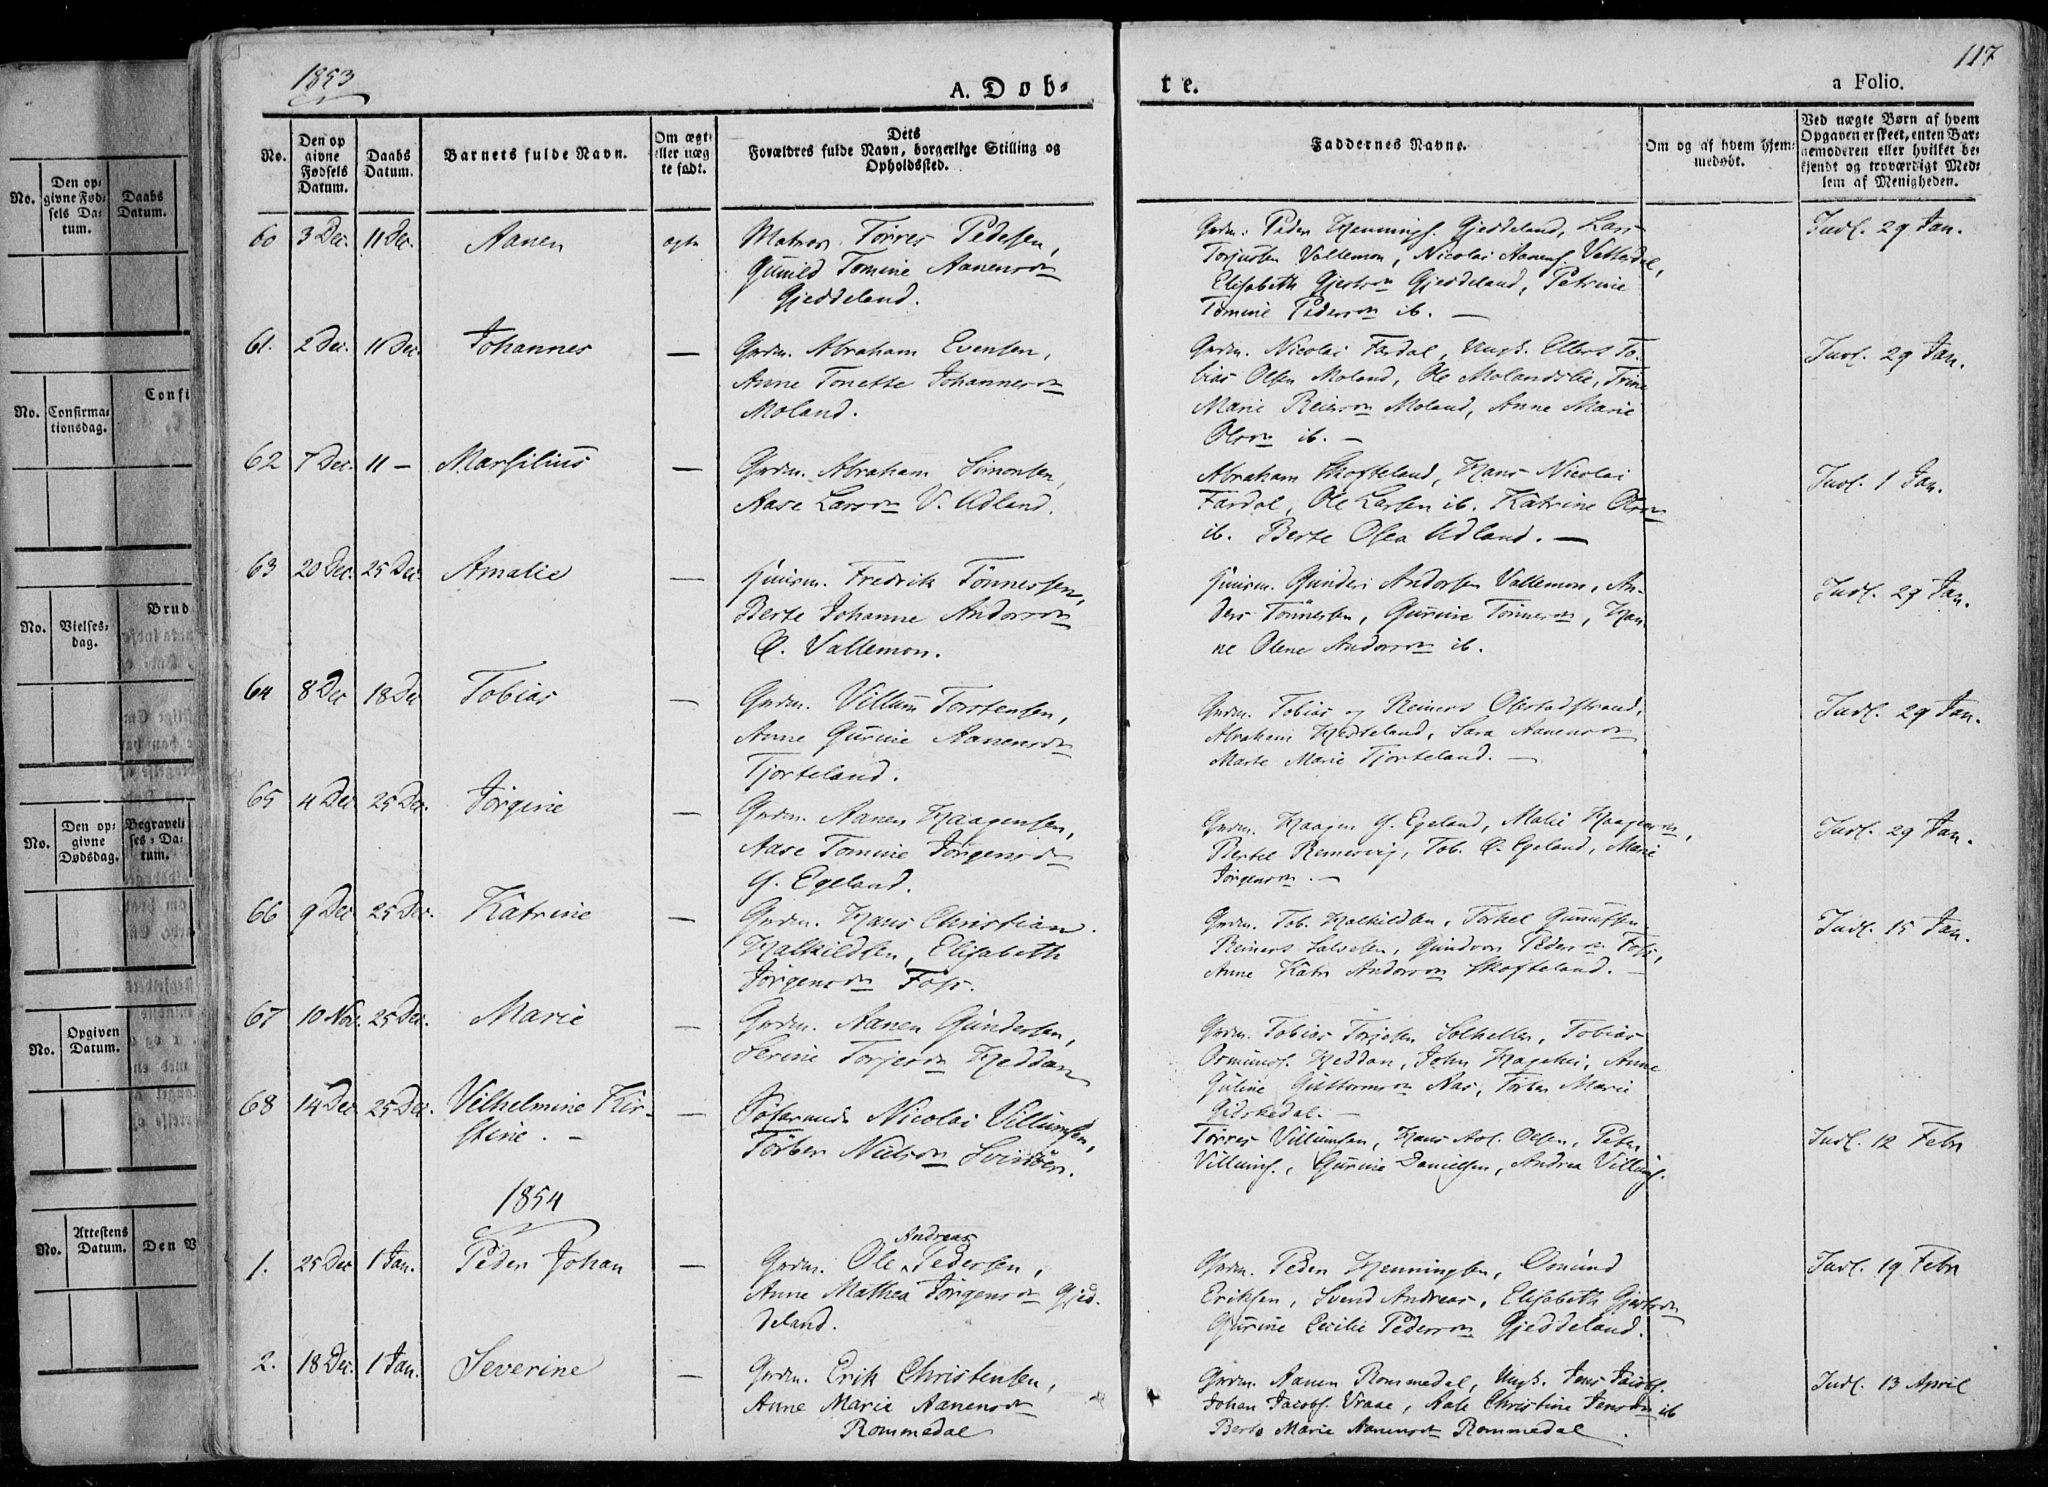 1853
A. Døb-
te.
a Folio.
117
No.
Den op
givne
Fødsels
Datum.
Daabs
Datum.
Barnets fulde Navn.
Om ægt
eller uæg
te født.
Dets
Forældres fulde Navn, borgerlige Stilling og
Opholdssted.
Faddernes Navne.
Om og af hvem hjem-
medøbt.
Ved uægte Børn af hvem
Opgaven er skeet, enten Bar-
nemoderen eller hvilket be-
kjendt og troværdigt Med-
lem af Menigheden.
60 3 Dec. 11 Dec. Aanen ægte Matros Tørres Pedersen,
Gunild Tomine Aanensdn
Gjeddeland.
Grdm. Peder Hennings. Gjeddeland, Lars
Torjusen Vallemon, Nicolai Aanens. Vetledal,
Elisabeth Gjertsdn Gjeddeland, Petrine
Tomine Pedersdn ib. —
Indl. 29 Jan.
61. 2 Dec. 11 Dec. Johannes — Grdm. Abraham Evensen,
Anne Tonette Johannesdn
Moland.
Grdm. Nicolai Fardal, Ungk. Ellert To-
bias Olsen Moland, Ole Molandslie, Trine
Marie Reiersdn Moland, Anne Marie
Olsdn ib. —
Indl. 29 Jan.
62 7 Dec. 11 — Marsilius — Grdm. Abraham Simonsen,
Aase Larsdn V. Udland.
Abraham Skofteland, Hans Nicolai
Fardal, Ole Larsen ib. Katrine Olsdn
ib. Berte Olea Udland. —
Indl. 1 Jan.
63 20 Dec. 25 Dec. Amalie — Huusm. Fredrik Tønnessen,
Berte Johanne Andersdn
O. Vallemon.
Huusm. Gunder Andersen Vallemon, An-
ders Tønnessen, Gurine Tønnesdn, Han-
ne Olene Andersdn ib.
Indl. 29 Jan.
64 8 Dec 18 Dec Tobias — Grdm. Villum Torstensen,
Anne Gurine Aanensdn
Tjorteland.
Grdm. Tobias og Reinert Obrestadstrand,
Abraham Hesteland, Sara Aanensdn
Marte Marie Tjorteland. —
Indl. 29 Jan.
65 4 Dec. 25 Dec. Jørgine — Grdm. Aanen Haagensen,
Aase Tomine Jørgensdn
Y. Egeland.
Grdm. Haagen Y. Egeland, Malie Haagensdn,
Bertel Remesvig, Tob. O. Egeland, Marie
Jørgensdn. —
Indl. 29 Jan.
66 9 Dec 25 Dec. Katrine — Grdm. Hans Christian
Halkildsen, Elisabeth
Jørgensdn Foss.
Grdm. Tob. Halkildsen, Torkel Gunufsen
Reinert Salvesen, Gundvor Pedersdn Foss,
Anne Katr. Andersdn Skofteland. —
Indl. 15 Jan.
67 10 Nov. 25 Dec. Marie — Grdm. Aanen Gundersen,
Serine Torjesdn Heddan
Grdm. Tobias Torjesen Solheller, Tobias
Osmunds. Heddan, John Haahei, Anne
Guline Guttormsdn Aas, Torber Marie
Gidskedal. —
68 14 Dec 25 Dec. Vilhelmine Kir-
stine. — — Søfarende Nicolai Villumsen,
Torber Nielsdn Svinøer.
Tørres Villumsen, Hans Ad. Olsen, Peter
Villums., Gurine Danielsen, Andrea Villums.
Indl. 12 Febr
1854
1. 25 Dec 1 Jan. Peder Johan — Grdm. Ole Andreas Pedersen,
Anne Mathea Jørgensdn Gjed-
deland.
Grdm. Peder Henningsen, Osmund
Eriksen, Svend Andreas, Elisabeth Gjertsdn
Gurine Cecilie Pedersdn Gjeddeland.
Indl. 19 Febr
2. 18 Dec. 1 Jan. Severine — Grdm. Erik Christensen,
Anne Marie Aanensdn
Rommedal
Grdm. Aanen Rommedal, Ungk. Jens Jacobs.
Johan Jacobs. Vraae, Aale Christine Jensdn ib
Berte Marie Aanensdn Rommedal.
Indl. 13 April
No.
Den op-
givne Fød-
sels Da-
tum.
Daabs
Datum.
Confi
No.
Confirma-
tionsdag.
Brud
No.
Vielses-
dag.
No.
Den op-
givne
Dødsdag.
Begravel-
ses-Da-
tum.
No.
Opgiven
Datum.
No.
Attestens
Datum.
Den V